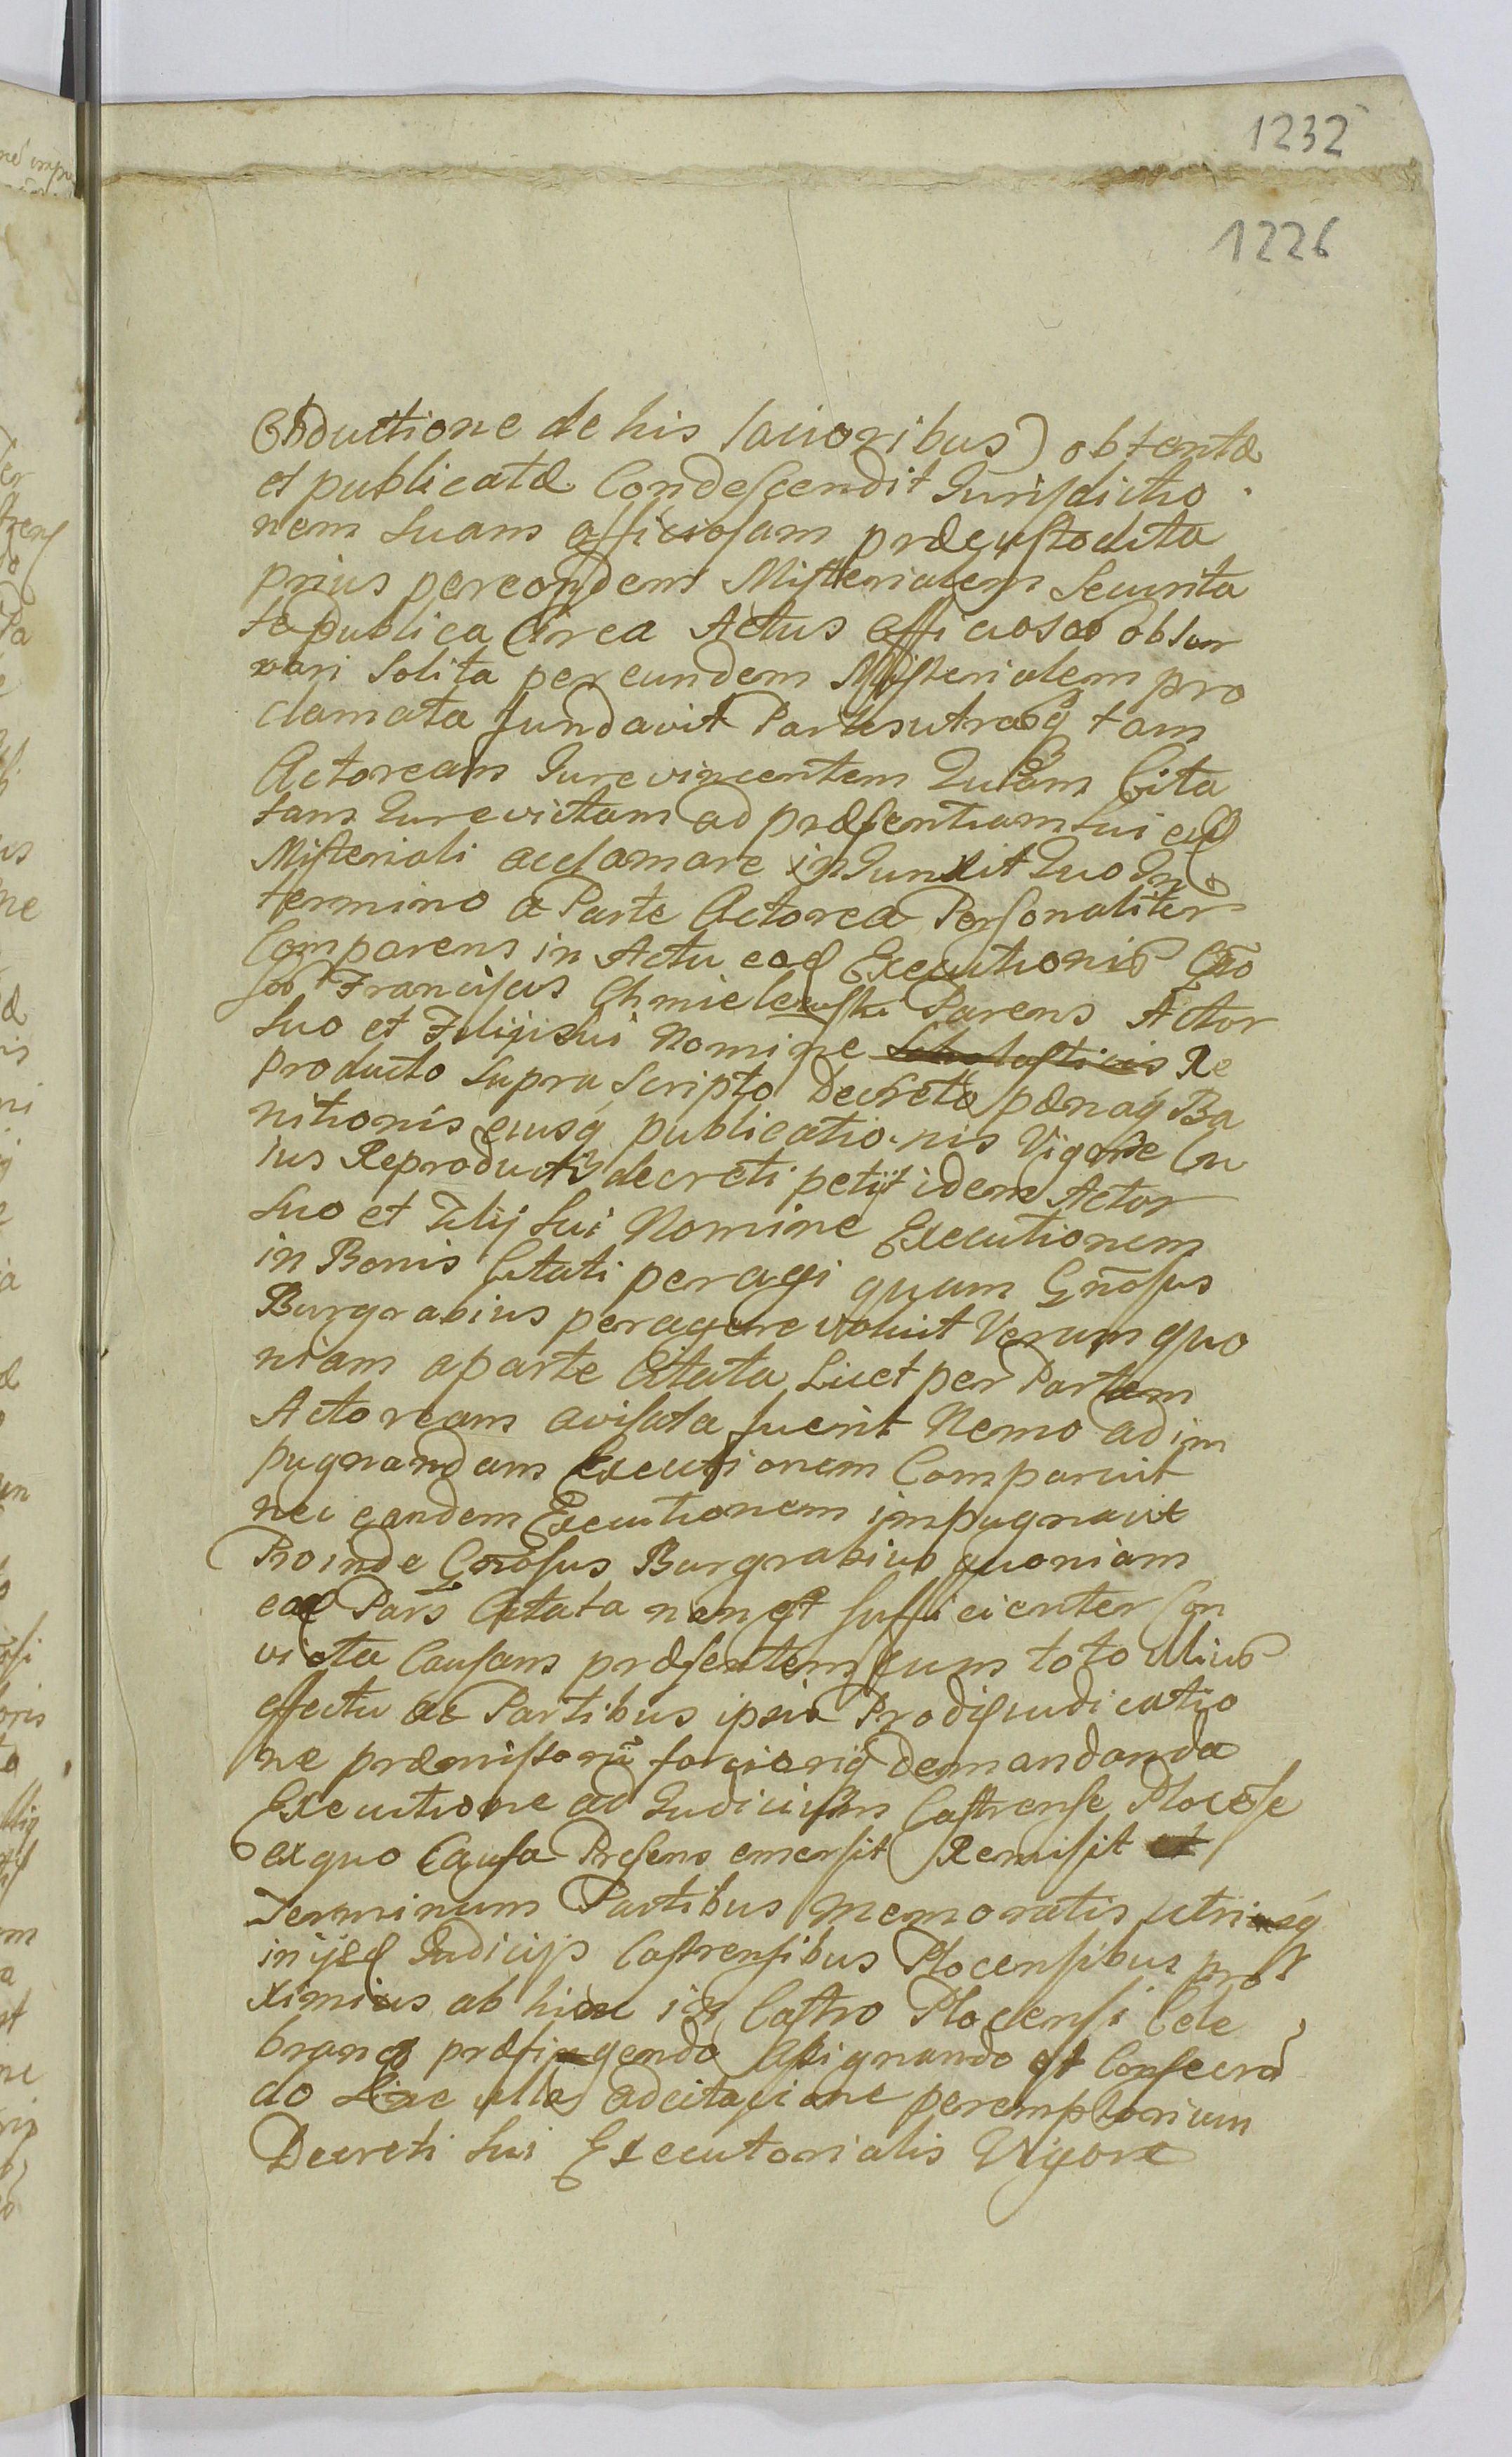 1232
1226
Obductione de his lacioribus) obtentæ
et publicatæ Condescendit Jurisdictio
nem suam officiosam præcustodita
prius per eondem Misterialem Securita
te publica Circa Actus officiosos obser
vari Solita per eundem Misterialem pro
clamata fundavit Partes utrasq tam
Actoream Jurevincentem Quam Cita
tam Jurevictam ad præsentiam sui eid
Misteriali acclamare inJunxit Quo In
termino a Parte Actorea Personaliter
Comparens in Actu ead Executionis Gno
sus Franciscus Chmielewski Parens Actor
suo et Filij sui Nomine Re
producto supra scripto Decreto pænaq Ba
nitionis eiusq publicationis Vigore Cu
ius Reproducti decreti petijt idem Actor
suo et Filij sui Nomine Executionem
in Bonis Citati peragi quam Gnosus
Burgrabius peragere voluit Verum quo
niam a parte Citata Licet per Partem
Actoream avisata fuerit Nemo ad im
pugnandam Executionem Comparuit
nec eandem Executionem impugnavit
Proinde Gnosus Burgrabius quoniam
ead Pars Citata non est sufficienter Con
victa Causam præsentem cum toto illius
effectu ac Partibus ipsis Pro dijudicatio
ne præmissorũ fortioriq demandanda
Executione ad Judicium Castrense Plocẽse
ex quo Causa Presens emersit Remisit et
Terminum Partibus memoratis utrisq
in ijsd Judicijs Castrensibus Plocensibus pro
ximius ab hinc in Castro Plocensi Cele
brand præfigendo Assignando et Conserva
do Sine ulla adcitatione peremptorium
Decreti sui Executorialis Vigore